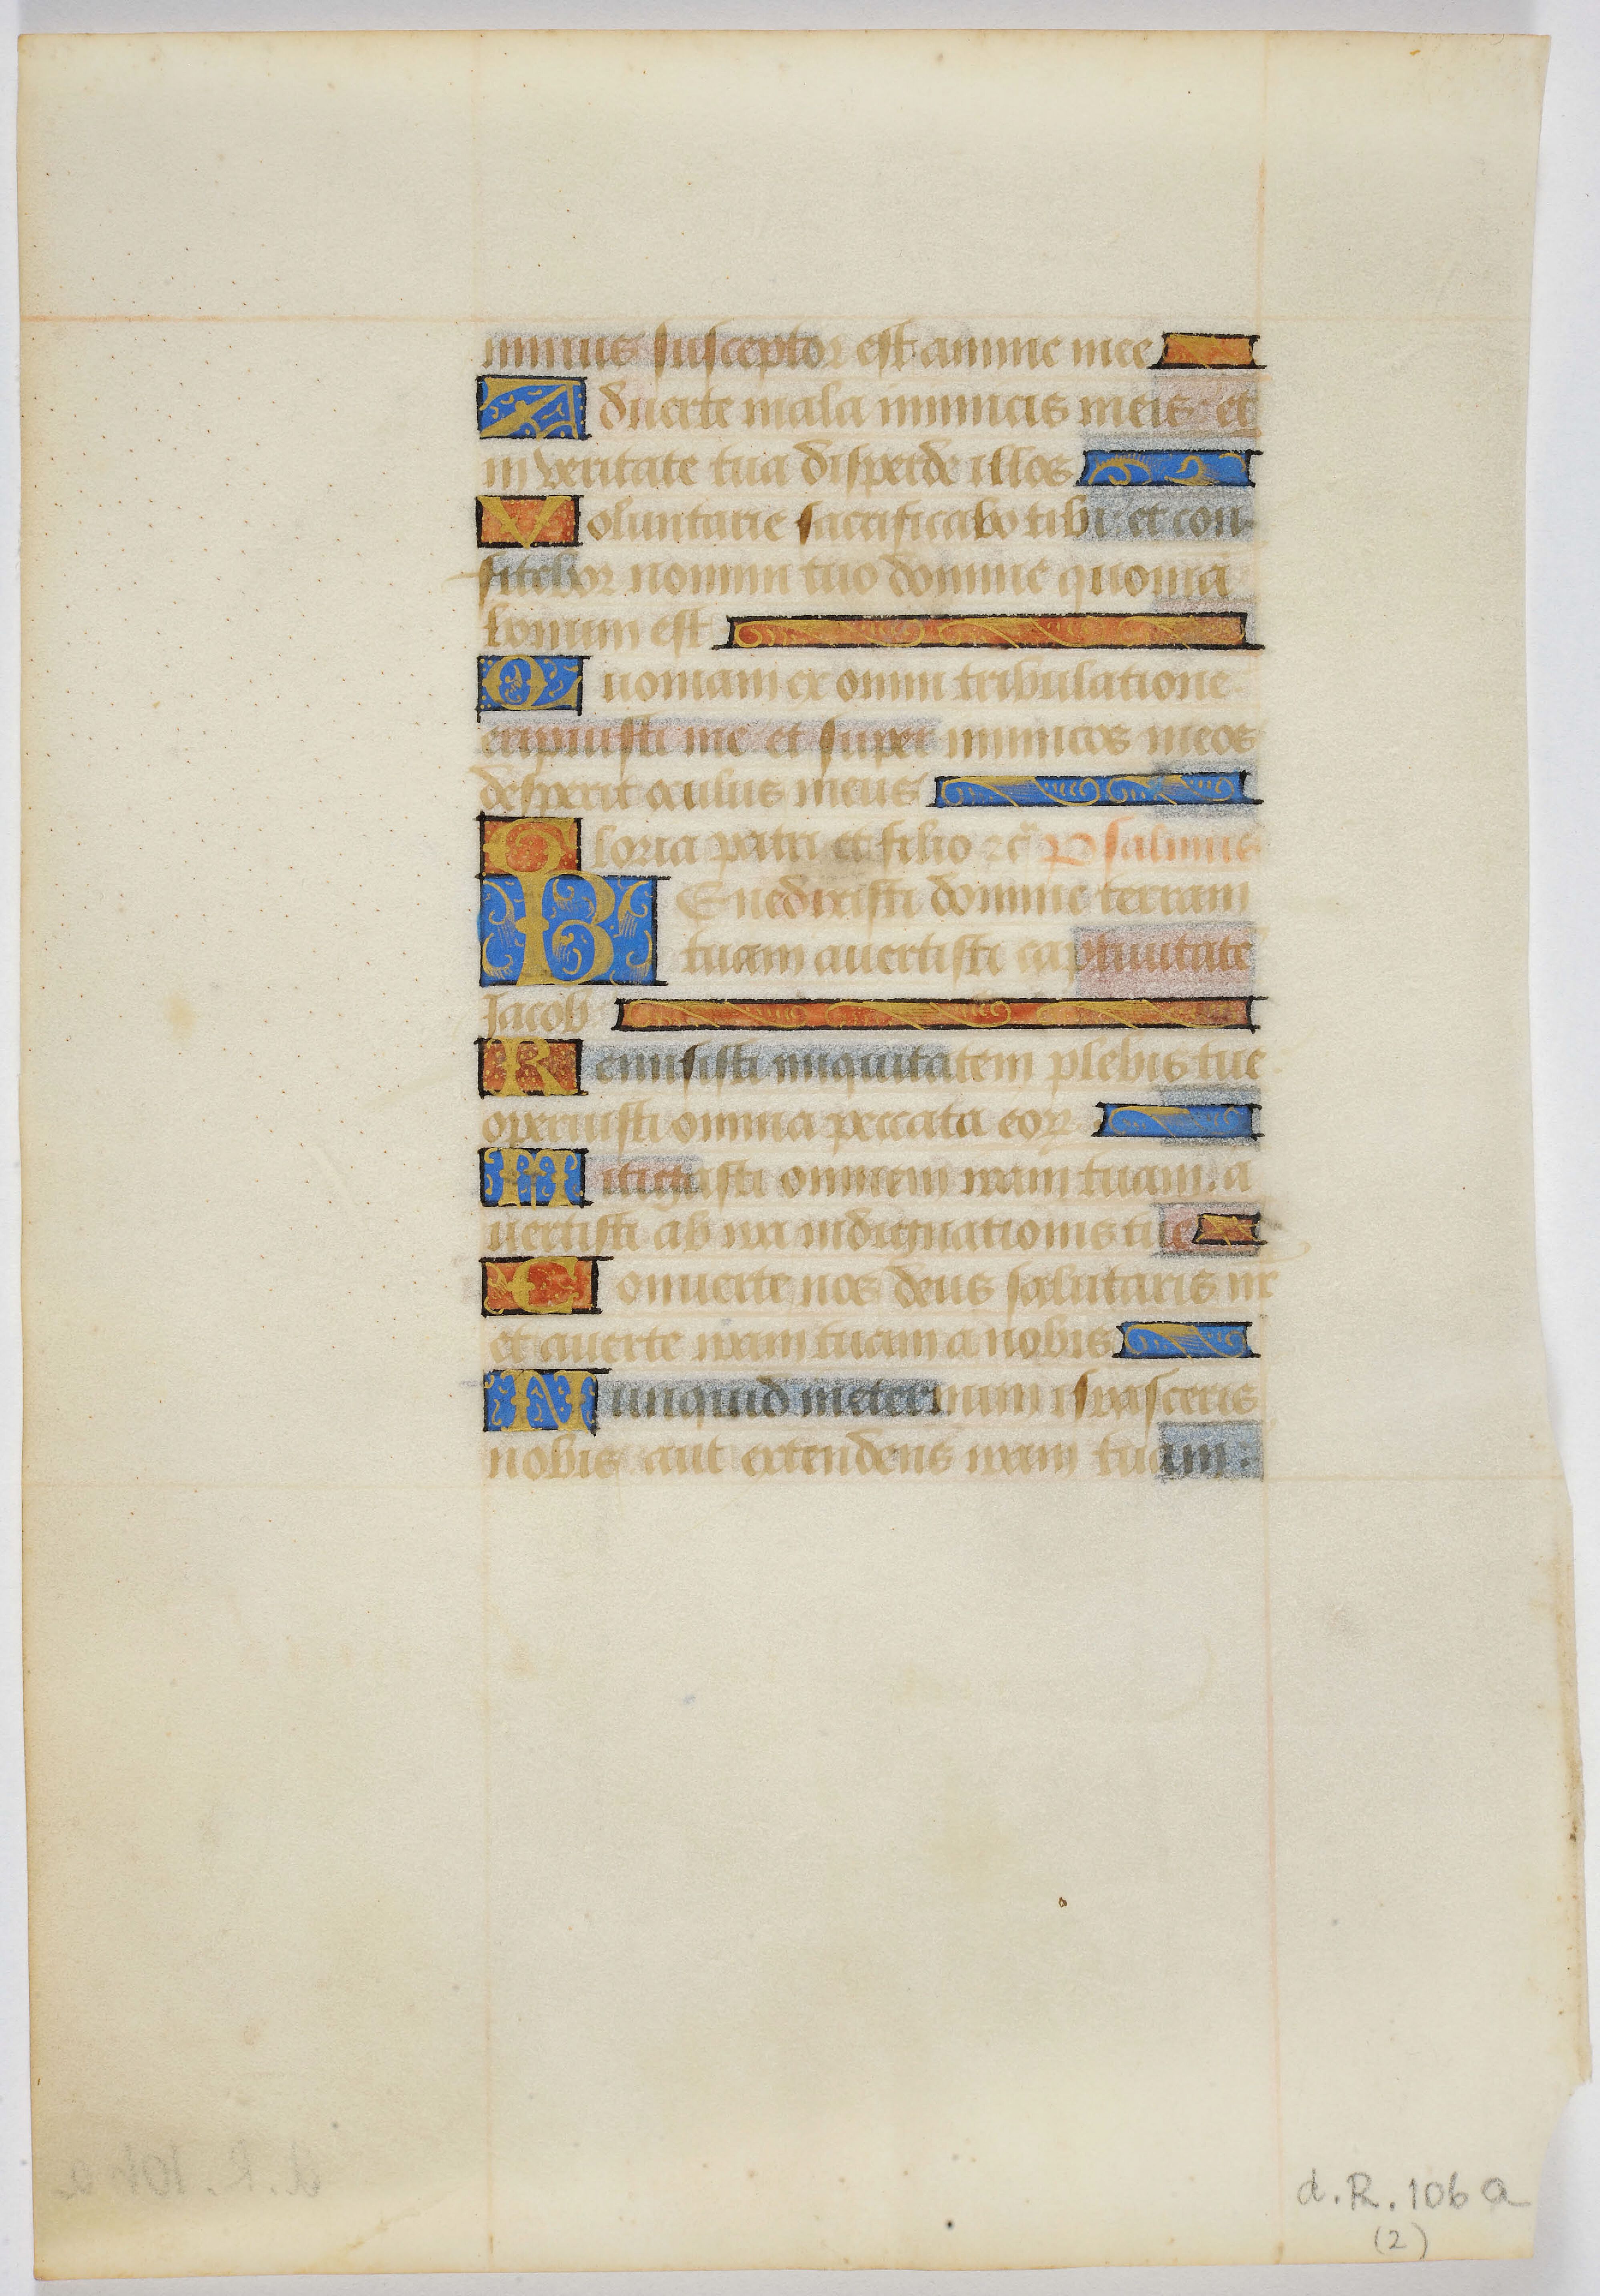 minus susceptor est anime mee
Aduerte mala inimicis meis et
in veritate tua disperde illos
Voluntarie sacrificabo tibi et con-
fitebor nomini tuo domine quoniā
bonum est
Quoniam ex omni tribulatione
eripuisti me et super inimicos meos
desperit oculus meus
Gloria patri et filio ⁊c̄ Psalmus
BEnedixisti domine terram
tuam auertisti captiuitate
Jacob
Remisisti iniquitatem plebis tue
operuisti omnia peccata eoꝝ
Mitigasti omnem iram tuam. a
uertisti ab ira indignationis tue
Conuerte nos deus salutaris nr̄
et auerte iram tuam a nobis
Nunquid ineternum irasceris
nobis aut extendens iram tuam.
d.R.106a
(2)